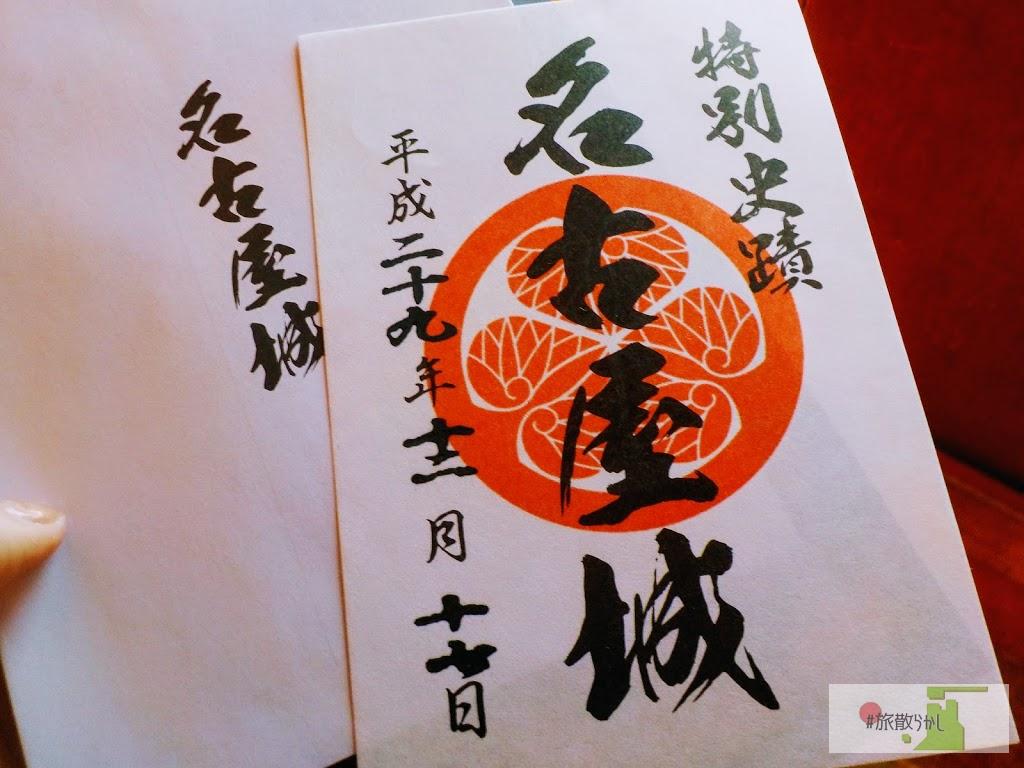 特別史蹟
名古屋城
平成二十九年十二月十七日
名古屋城
#旅散らかし